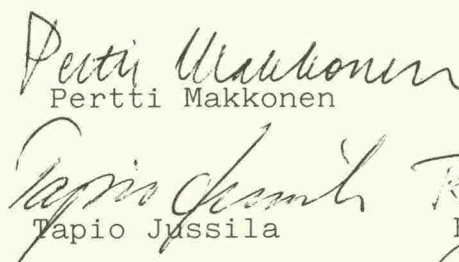 Pertti Makkonen
Pertti Makkonen
Tapio Jussila
Tapio Jussila